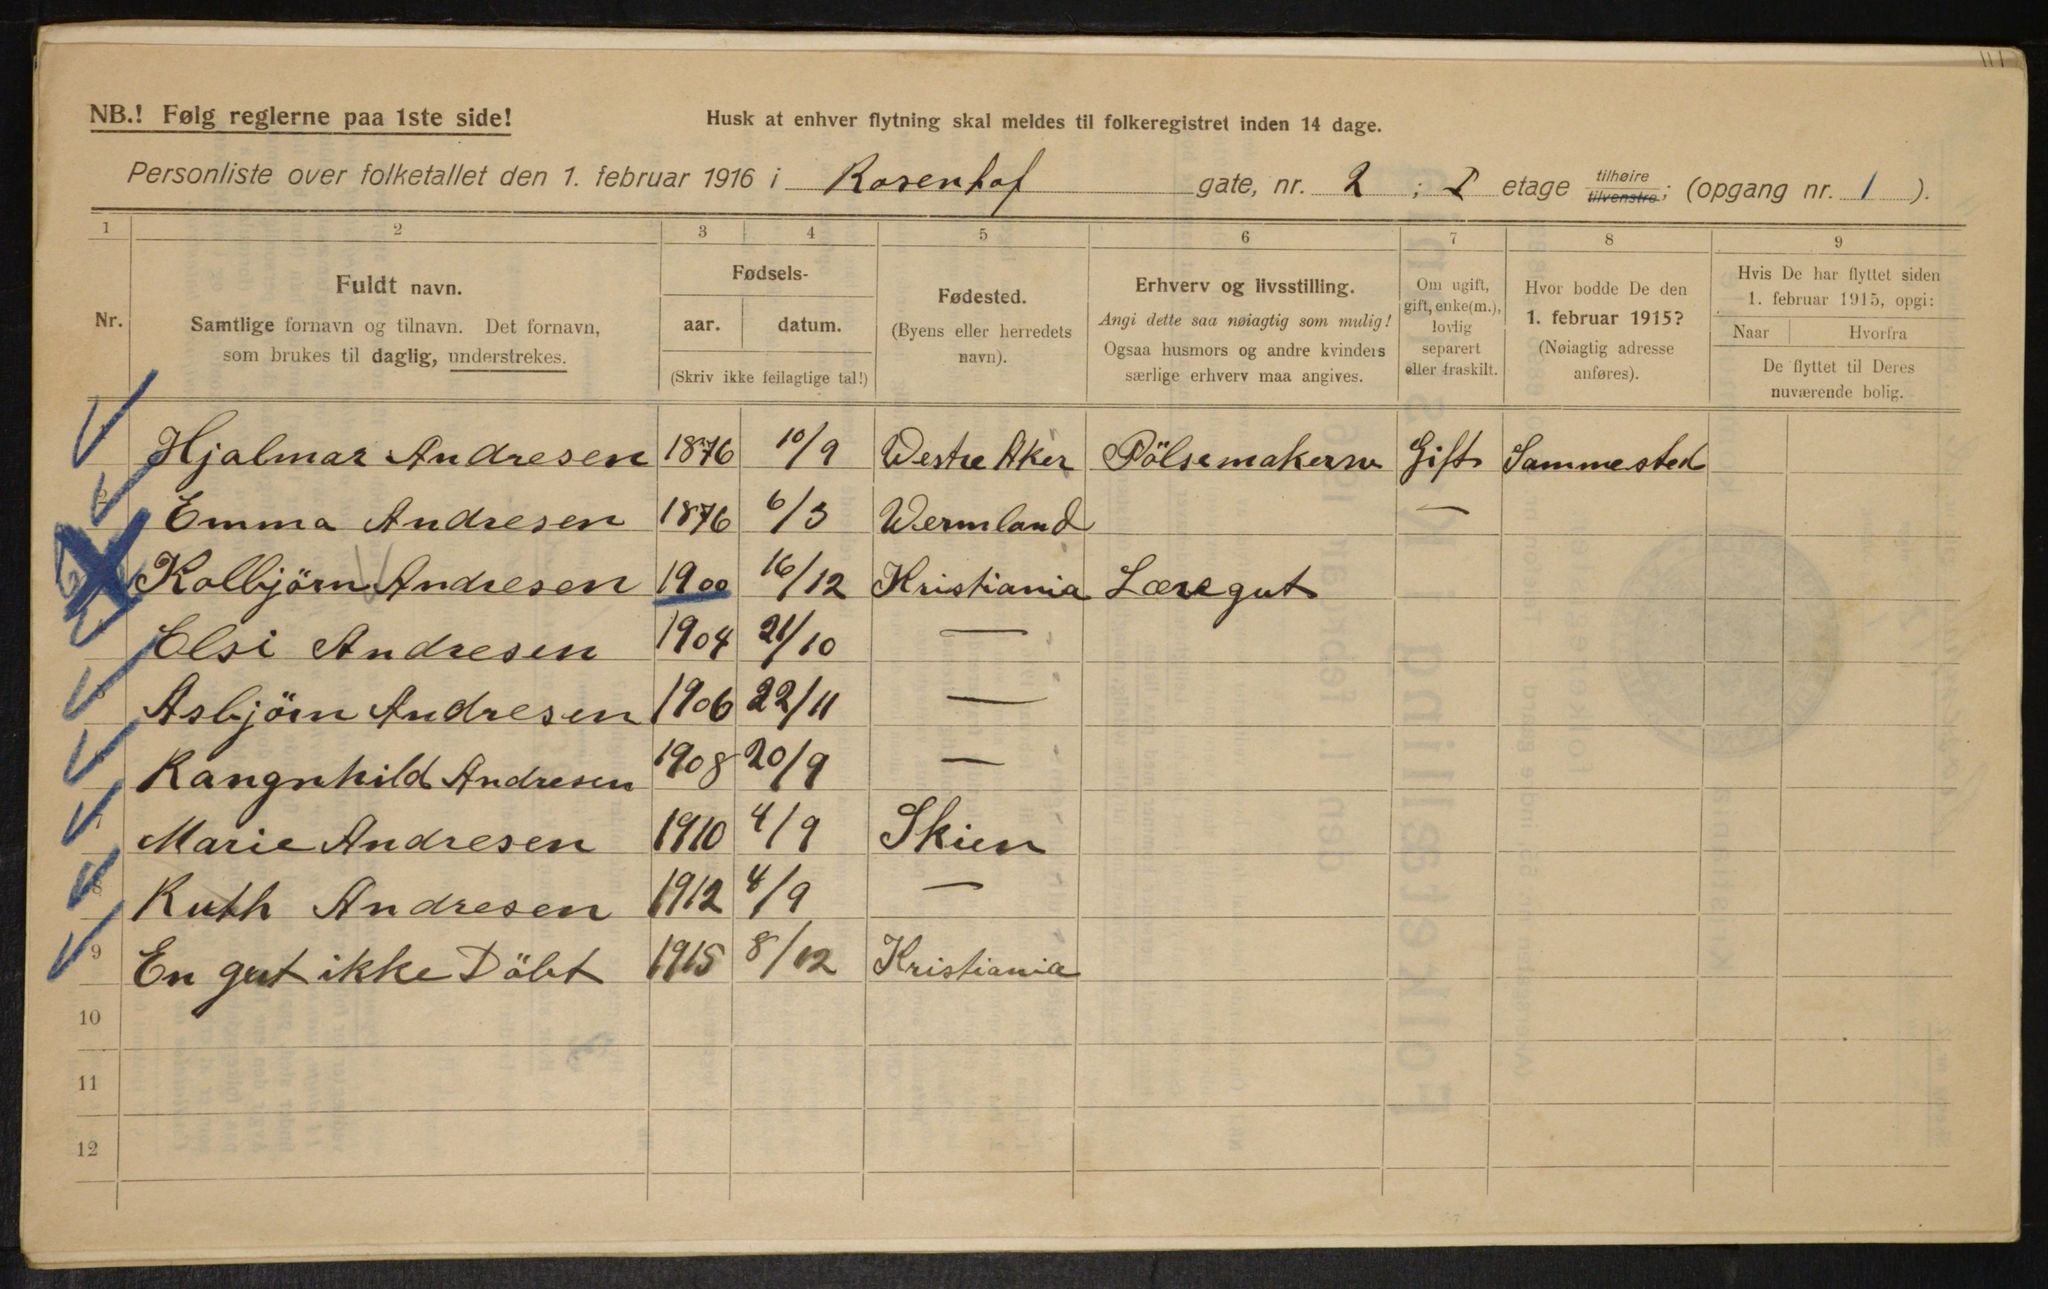 NB.! Følg reglerne paa 1ste side!
Husk at enhver flytning skal meldes til folkeregistret inden 14 dage.
Personliste over folketallet den 1. februar 1916 i Rosenhof gate, nr. 2 ; I etage tilhøire tilvenstre; (opgang nr. 1 ).
1 2 3 4 5 6 7 8 9
Nr.
Fuldt navn.
Samtlige fornavn og tilnavn. Det fornavn,
som brukes til daglig, understrekes.
Fødsels-
aar. datum.
(Skriv ikke feilagtige tal!)
Fødested.
(Byens eller herredets
navn).
Erhverv og livsstilling.
Angi dette saa nøiagtig som mulig!
Ogsaa husmors og andre kvinders
særlige erhverv maa angives.
Om ugift,
gift, enke(m.),
lovlig
separert
eller fraskilt.
Hvor bodde De den
1. februar 1915?
(Nøiagtig adresse
anføres).
Hvis De har flyttet siden
1. februar 1915, opgi:
Naar Hvorfra
De flyttet til Deres
nuværende bolig.
Hjalmar Andresen 1876 10/9 Westre Aker Pölsemakersv Gift Sammested
Emma Andresen 1876 6/3 Wermland —
Kolbjörn Andresen 1900 16/12 Kristiania Læregut
Elsi Andresen 1904 21/10 —
Asbjörn Andresen 1906 22/11 —
Rangnhild Andresen 1908 20/9 —
Marie Andresen 1910 4/9 Skien
8 Ruth Andresen 1912 4/9 —
9 En gut ikke Döbt 1915 8/12 Kristiania
10
11
12